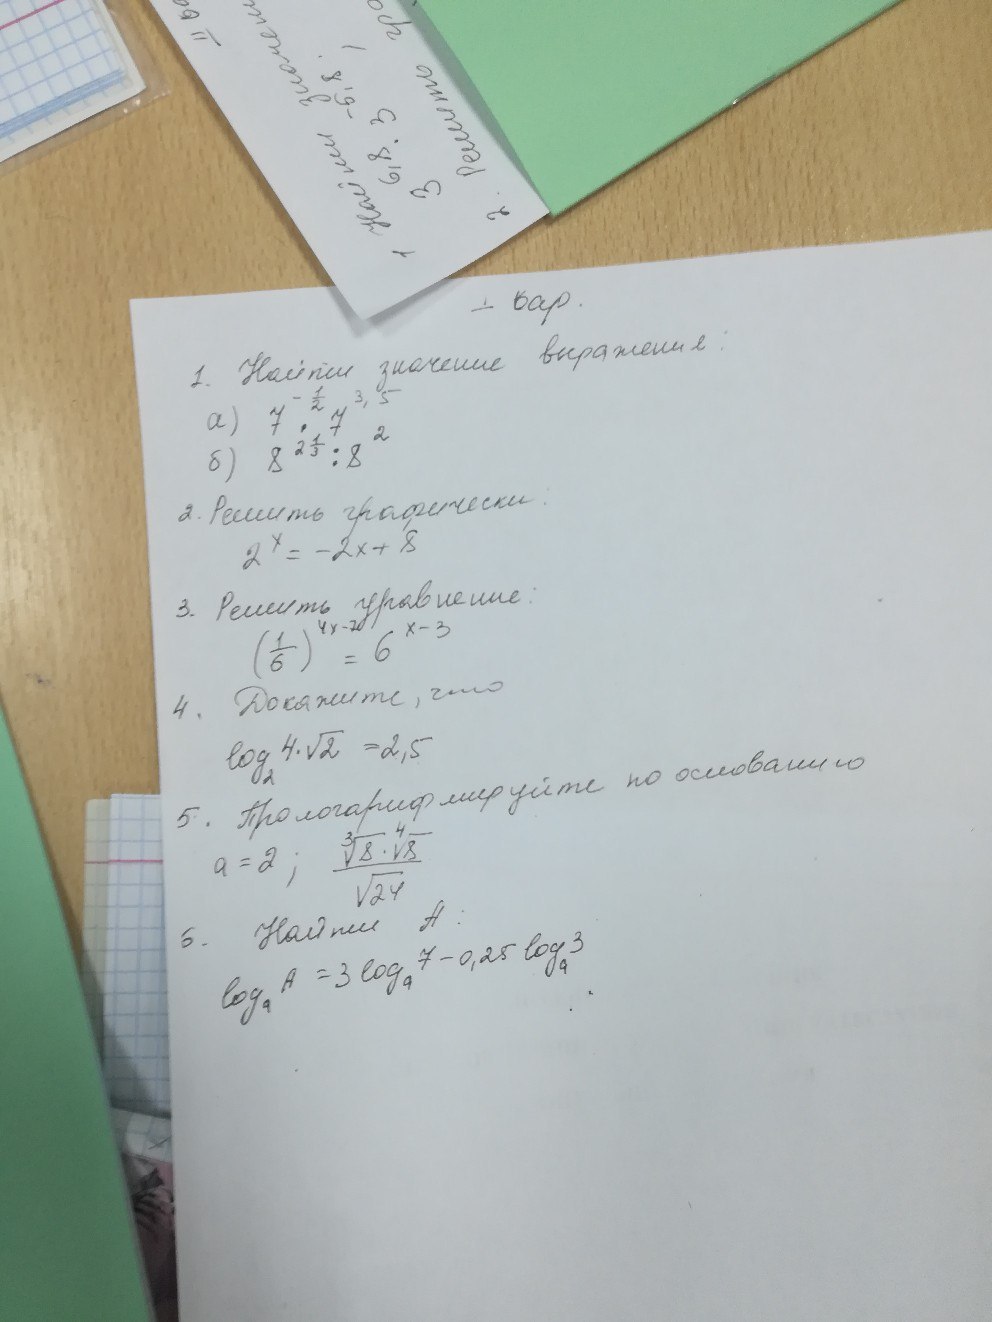 II ва
1 Найти значени
3^6,8 · 3^-5,8 ;
2. Решить гра
I вар.
1. Найти значение выражения:
а) 7^(-1/2) · 7^3,5
б) 8^(2 1/3) : 8^2
2. Решить графически:
2^x = -2x + 8
3. Решить уравнение:
(1/6)^(4x-7) = 6^(x-3)
4. Докажите, что
log₂ 4·√2 = 2,5
5. Прологарифмируйте по основанию
a = 2 ; (∛8 · ∜8) / √24
6. Найти A :
logₐ A = 3 logₐ 7 - 0,25 logₐ 3